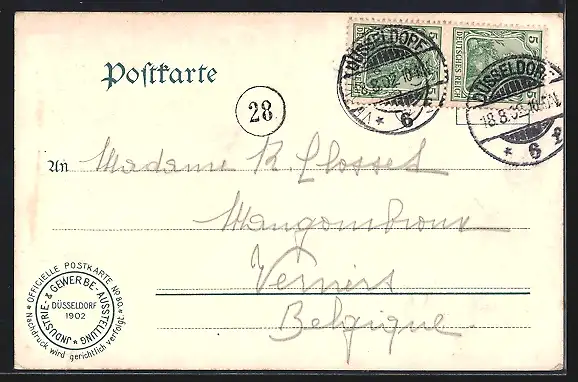 5 5
DEUTSCHES REICH DEUTSCHES REICH
DÜSSELDORF
6
DÜSSELDORF
18.8.02
6 e
Postkarte
28.
An Madame R. Closset
Mangombroux
Verviers
Belgique
* OFFICIELLE POSTKARTE No 80. * Nachdruck wird gerichtlich verfolgt.
INDUSTRIE- & GEWERBE-AUSSTELLUNG *
DÜSSELDORF
1902